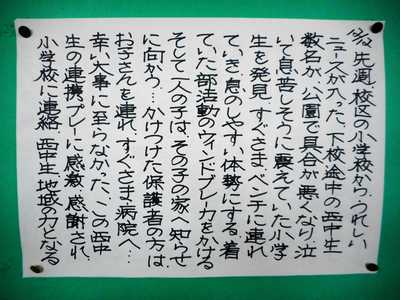 先週、校区の小学校から、うれしい
ニュースが入った。下校途中の西中生
数名が、公園で具合が悪くなり、泣
いて息苦しそうに震えていた小学
生を発見、すぐさまベンチに連れ
ていき息のしやすい体勢にする。着
ていた部活動のウィンドブレーカをかける
そして一人の子は、その子の家へ知らせ
に向かう…かけつけた保護者の方は
お子さんを連れ、すぐさま病院へ…
幸い大事に至らなかった。この西中
生の連携プレーに感激、感謝され、
小学校に連絡。西中生、地域の力となる